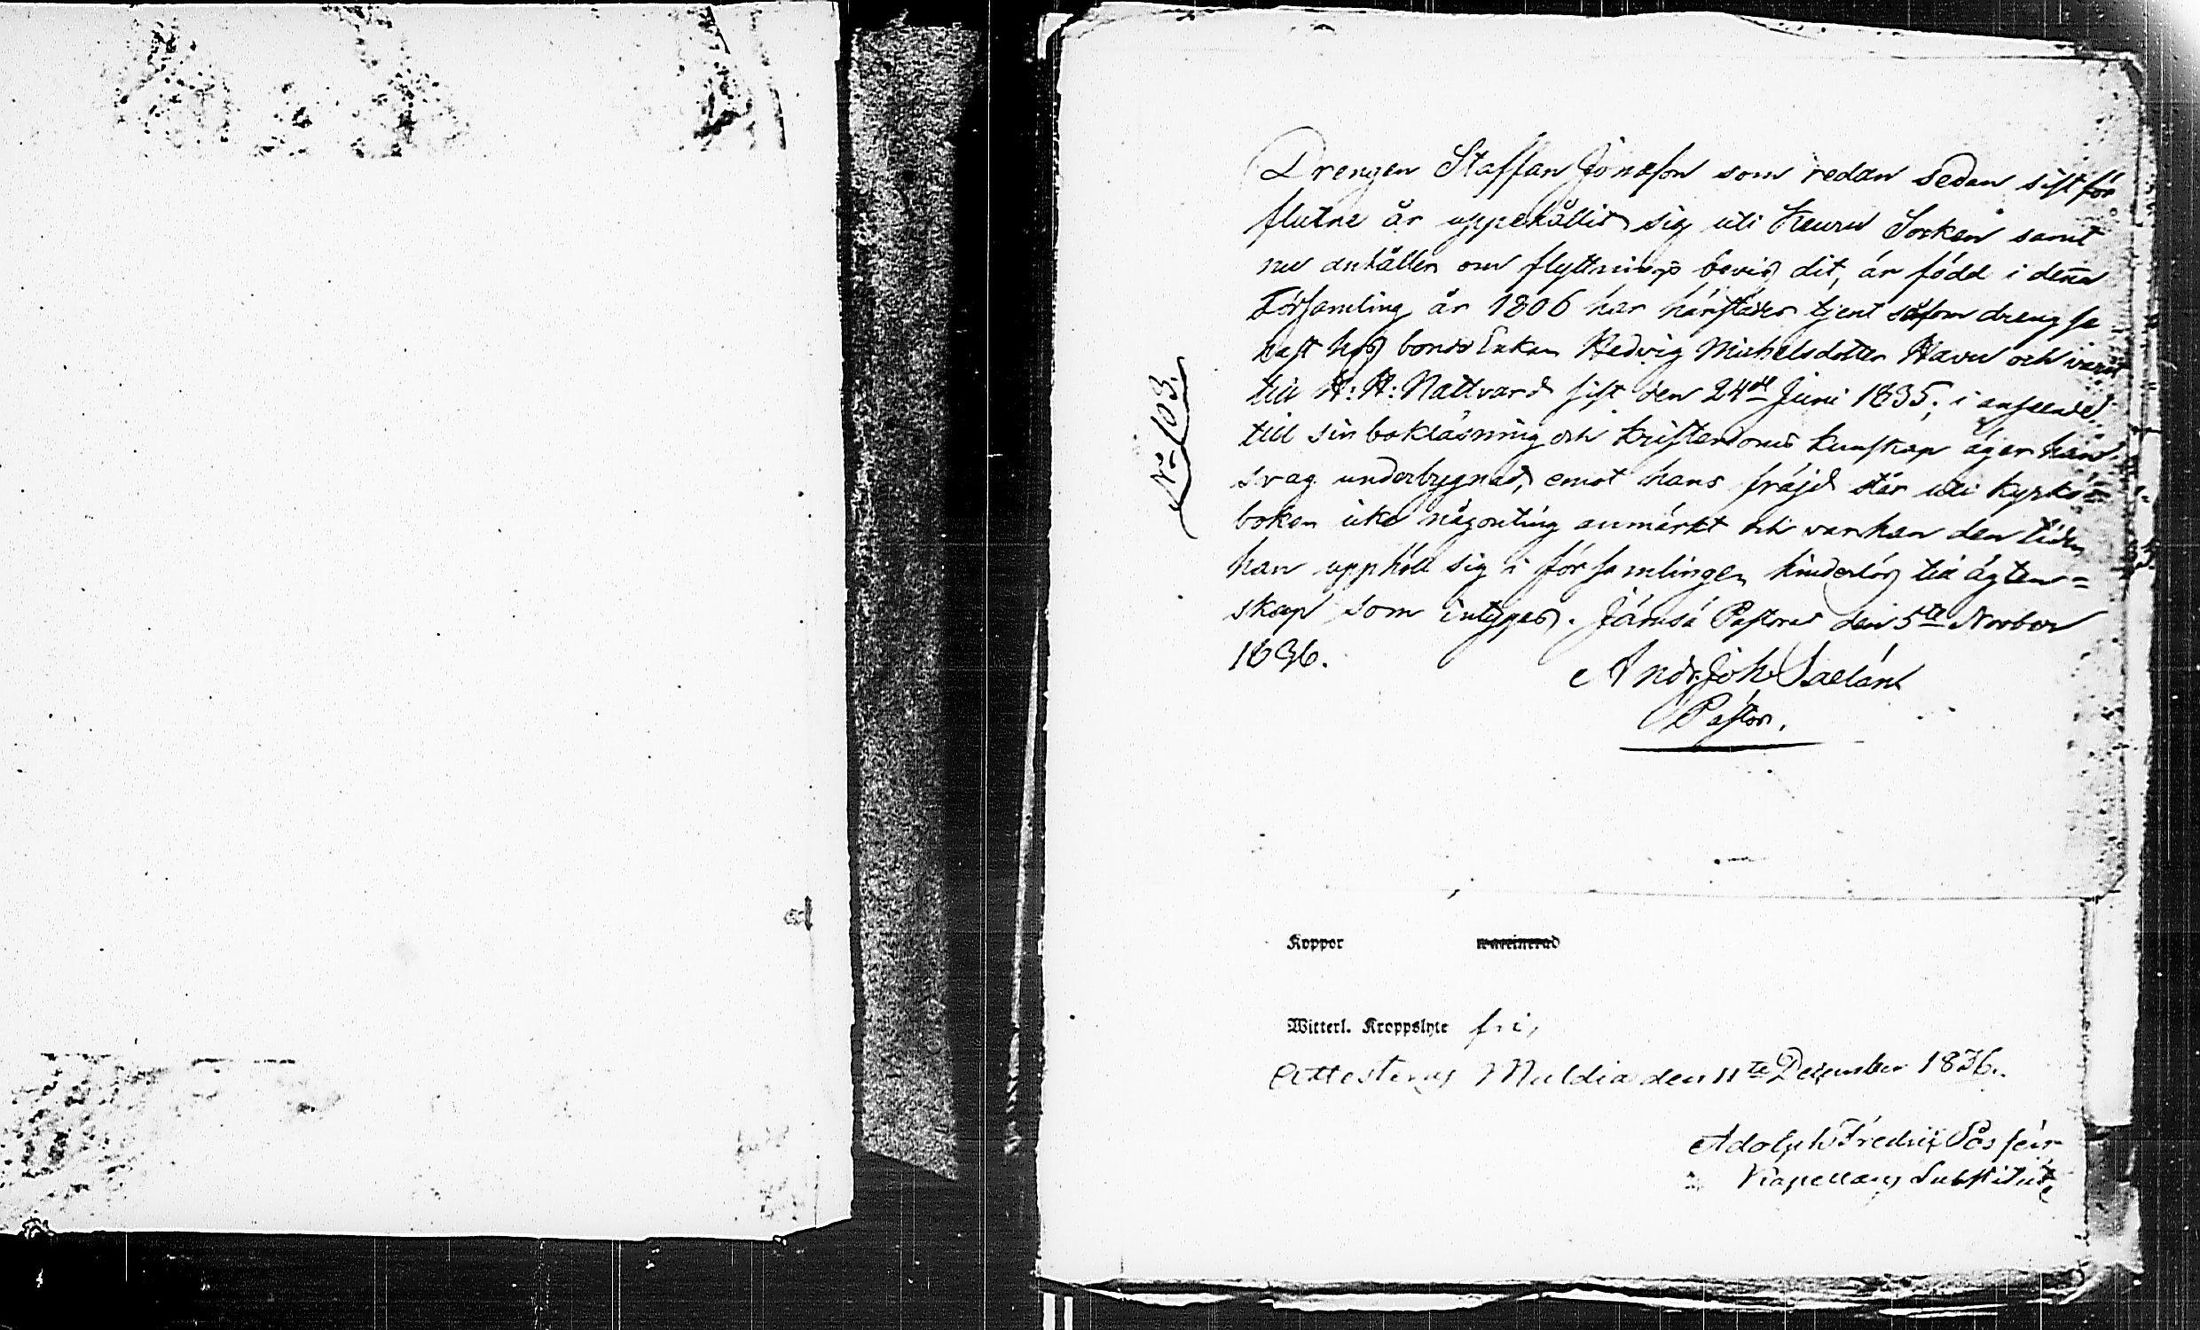 Drengen Staffan Jonasson som redan sedan sistför
flutne år uppehållit sig uti Keuru Socken samt
nu anhåller om flyttnings bevis dit, är född i denna
Församling år 1806 har härstädes tjent såsom dreng se
nast hos bonde Enkan Hedvig Michelsdotter Havu och varit
till H: H: Nattvard sist den 24de Juni 1835; i anseende
till sin bokläsning och kristendoms kunskap äger han
svag underbygnad, emot hans fräjd står uti kyrko=
boken icke någonting anmärkt och var han den tiden
han upphöll sig i församlingen hinderlös till ägten=
skap som intygas. Jämsä Pastorat den 5te Novber
1836.
And. Joh. Saelán
Pastor.
No 103.
Koppor vaccinerad
Witterl. Kroppslyte fri,
Attesteras Muldia den 11te December 1836.
Adolph Fredric
Kapellans Substitut